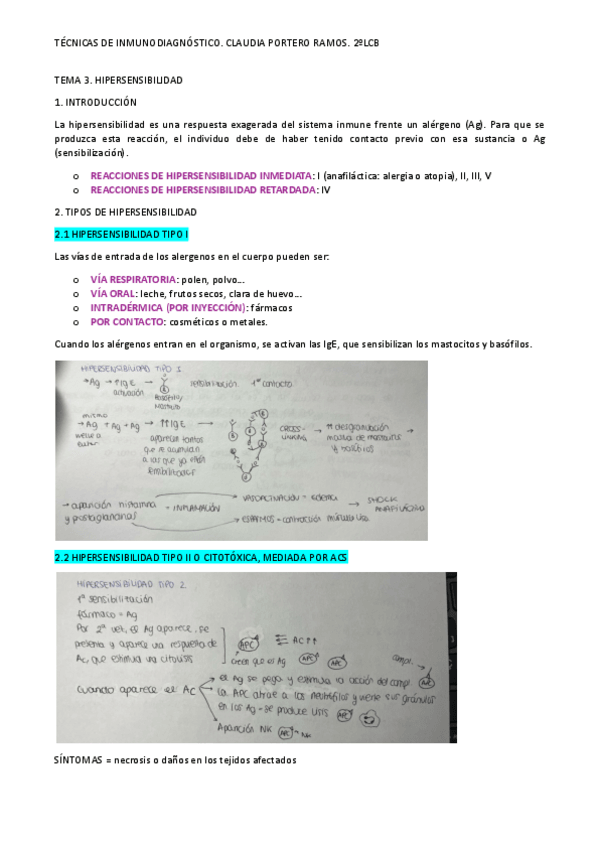 TÉCNICAS DE INMUNODIAGNÓSTICO. CLAUDIA PORTERO RAMOS. 2ºLCB
TEMA 3. HIPERSENSIBILIDAD
1. INTRODUCCIÓN
La hipersensibilidad es una respuesta exagerada del sistema inmune frente un alérgeno (Ag). Para que se
produzca esta reacción, el individuo debe de haber tenido contacto previo con esa sustancia o Ag
(sensibilización).
o REACCIONES DE HIPERSENSIBILIDAD INMEDIATA: I (anafiláctica: alergia o atopia), II, III, V
o REACCIONES DE HIPERSENSIBILIDAD RETARDADA: IV
2. TIPOS DE HIPERSENSIBILIDAD
2.1 HIPERSENSIBILIDAD TIPO I
Las vías de entrada de los alergenos en el cuerpo pueden ser:
o VÍA RESPIRATORIA: polen, polvo...
o VÍA ORAL: leche, frutos secos, clara de huevo...
o INTRADÉRMICA (POR INYECCIÓN): fármacos
o POR CONTACTO: cosméticos o metales.
Cuando los alérgenos entran en el organismo, se activan las IgE, que sensibilizan los mastocitos y basófilos.
HIPERSENSIBILIDAD TIPO 1
→ Ag → ↑IgE → sensibilitación 1er contacto
activación
Basófilo/
Mastocito
mismo
→ Ag ↑Ag → Ag → ↑↑IgE
vuelve a
entrar
aparecen tantas
que se acumulan
a las que ya están
sensibilitadas
CROSS-
LINKING → ↑↑ desgranulación
masiva de mastocitos
y basófilos
→ aparición histamina
y prostaglandinas = INFLAMACIÓN
VASOACTIVACIÓN = edema
ESPASMOS = contracción músculo liso
→ SHOCK
ANAFILÁCTICO
2.2 HIPERSENSIBILIDAD TIPO II O CITOTÓXICA, MEDIADA POR ACS
HIPERSENSIBILIDAD TIPO 2
1ª sensibilitación
fármaco = Ag
Por 2ª vez, el Ag aparece, se
presenta y aparece una respuesta de
Ac, que estimula una citolisis
APC
creen que es Ag
AC↑↑
APC APC
Cuando aparece el AC
el Ag se pega y estimula la acción del compl.
compl.
APC
la APC atrae a los neutrófilos y vierte sus gránulos
en los Ag → se produce lisis APC
Aparición NK APC NK
SÍNTOMAS = necrosis o daños en los tejidos afectados